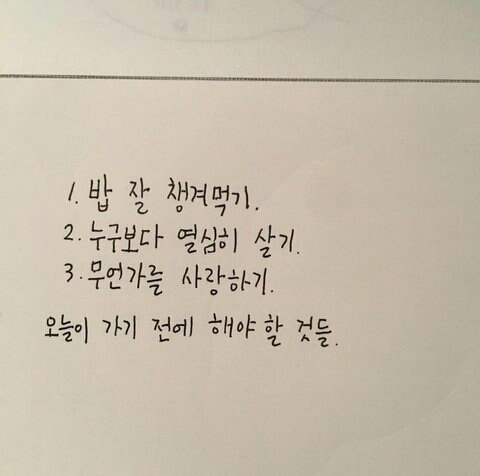 1. 밥 잘 챙겨먹기.
2. 누구보다 열심히 살기.
3. 무언가를 사랑하기.
오늘이 가기 전에 해야 할 것들.